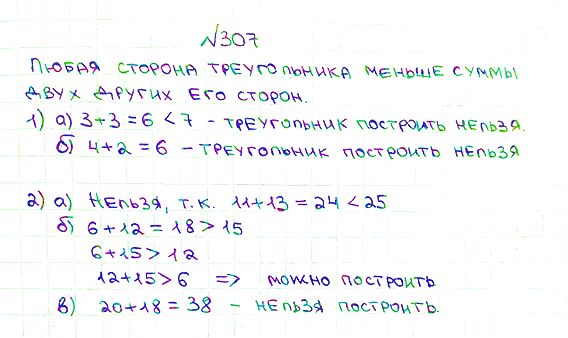 №307
Любая сторона треугольника меньше суммы
двух других его сторон.
1) а) 3+3=6<7 - треугольник построить нельзя.
б) 4+2=6 - треугольник построить нельзя
2) а) Нельзя, т.к. 11+13=24<25
б) 6+12=18>15
6+15>12
12+15>6 => можно построить
в) 20+18=38 - нельзя построить.